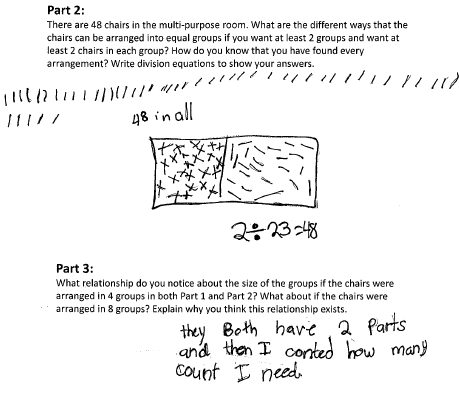 Part 2:
There are 48 chairs in the multi-purpose room. What are the different ways that the
chairs can be arranged into equal groups if you want at least 2 groups and want at
least 2 chairs in each group? How do you know that you have found every
arrangement? Write division equations to show your answers.
48 in all
2÷23=48
Part 3:
What relationship do you notice about the size of the groups if the chairs were
arranged in 4 groups in both Part 1 and Part 2? What about if the chairs were
arranged in 8 groups? Explain why you think this relationship exists.
they Both have 2 Parts
and then I conted how many
count I need.